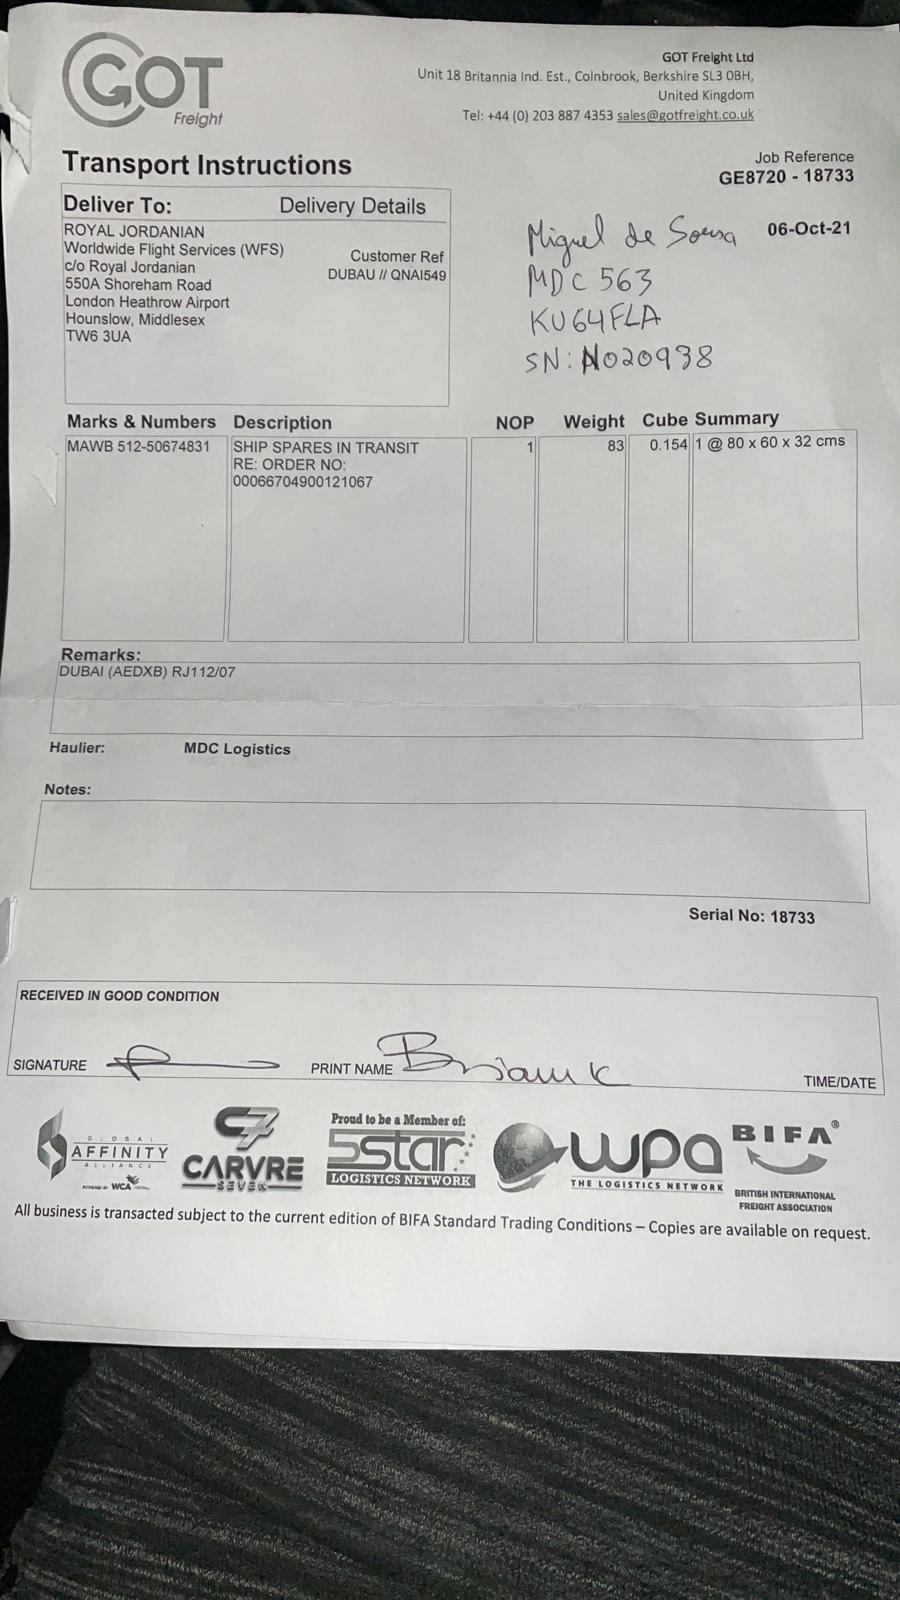 GOT
Freight
GOT Freight Ltd
Unit 18 Britannia Ind. Est., Colnbrook, Berkshire SL3 0BH,
United Kingdom
Tel: +44 (0) 203 887 4353 sales@gotfreight.co.uk
Transport Instructions
Job Reference
GE8720 - 18733
06-Oct-21
Deliver To: Delivery Details
ROYAL JORDANIAN
Worldwide Flight Services (WFS)
c/o Royal Jordanian
550A Shoreham Road
London Heathrow Airport
Hounslow, Middlesex
TW6 3UA
Customer Ref
DUBAU // QNAI549
Miguel de Sousa
MDC 563
KU64FLA
SN: N020938
Marks & Numbers Description NOP Weight Cube Summary
MAWB 512-50674831 SHIP SPARES IN TRANSIT 1 83 0.154 1 @ 80 x 60 x 32 cms
RE: ORDER NO:
00066704900121067
Remarks:
DUBAI (AEDXB) RJ112/07
Haulier: MDC Logistics
Notes:
Serial No: 18733
RECEIVED IN GOOD CONDITION
SIGNATURE PRINT NAME Brian K TIME/DATE
GLOBAL
AFFINITY
ALLIANCE
POWERED BY WCA
C7
CARVRE
SEVEN
Proud to be a Member of:
5star
LOGISTICS NETWORK
wpa
THE LOGISTICS NETWORK
BIFA®
BRITISH INTERNATIONAL
FREIGHT ASSOCIATION
All business is transacted subject to the current edition of BIFA Standard Trading Conditions – Copies are available on request.